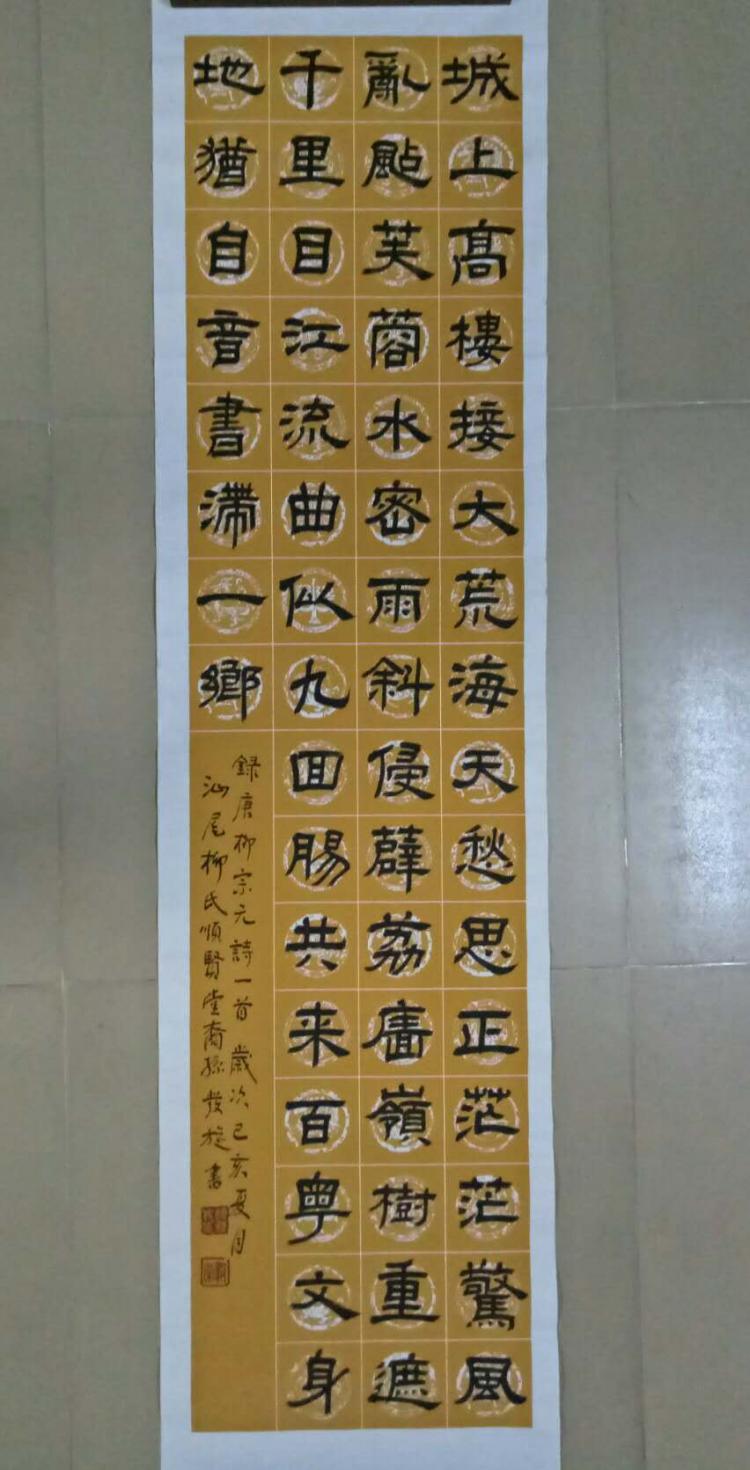 城上高樓接大荒海天愁思正茫茫驚風
亂颭芙蓉水密雨斜侵薜荔廧嶺樹重遮
千里目江流曲似九回腸共来百粤文身
地猶自音書滯一鄉
録唐柳宗元詩一首 歲次己亥夏月
汕尾柳氏順賢堂裔孫發旋書